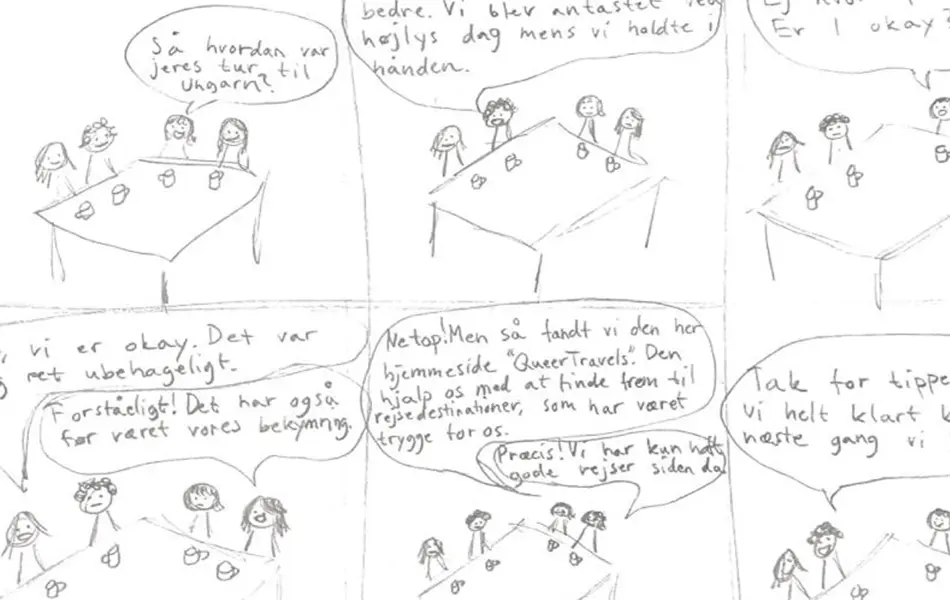 Så hvordan var
jeres tur til
Ungarn?
bedre. Vi blev antastet ved
højlys dag mens vi holdte i
hånden.
Er I okay?
vi er okay. Det var
ret ubehageligt.
Forståeligt! Det har også
før været vores bekymring.
Netop! Men så fandt vi den her
hjemmeside "QueerTravels". Den
hjalp os med at finde frem til
rejsedestinationer, som har været
trygge for os.
Præcis! Vi har kun haft
gode rejser siden da
Tak for tippe
vi helt klart
næste gang vi